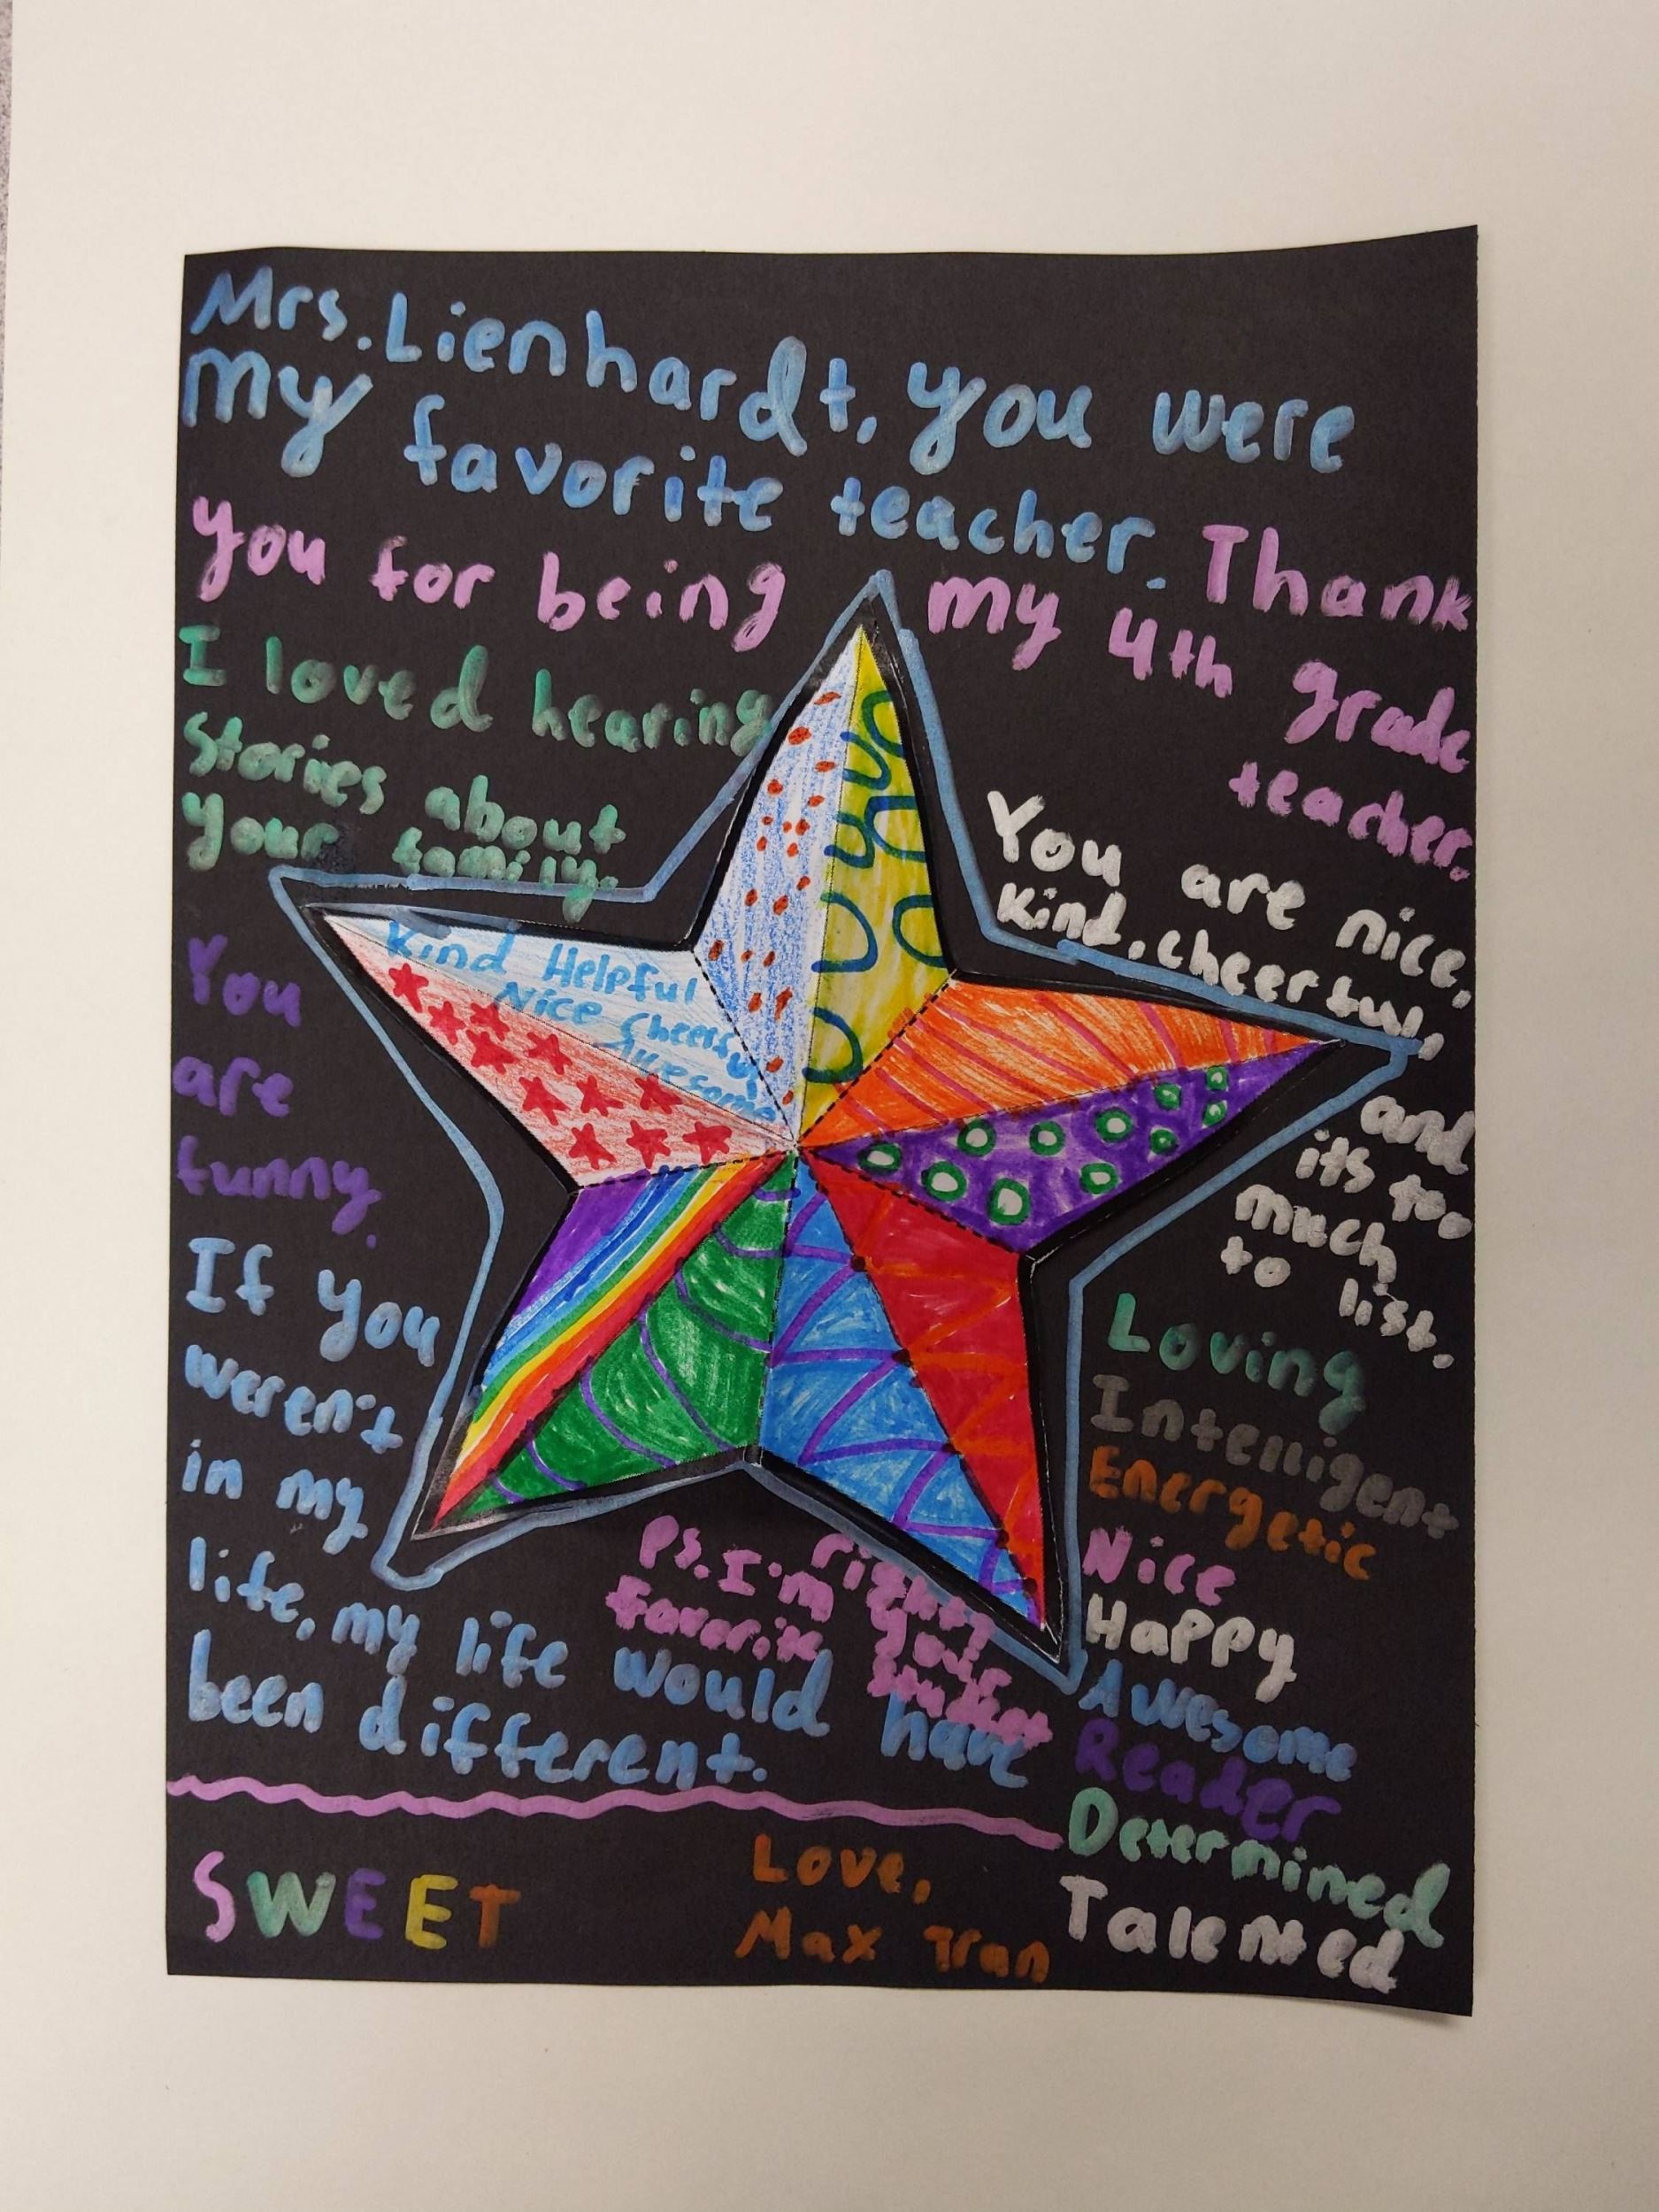 Mrs. Lienhardt, you were
my favorite teacher. Thank
you for being my 4th grade
teacher.
I loved hearing
stories about
your family.
You are nice,
kind, cheerful,
and
its too
much
to list.
Kind Helpful
Nice Cheerful
Awesome
You
are
funny.
If you
weren't
in my
life, my life would have
been different.
Ps. I'm
favorite
right?
your
student
Loving
Intelligent
Energetic
Nice
Happy
Awesome
Reader
Determined
Talented
SWEET
Love,
Max Tran